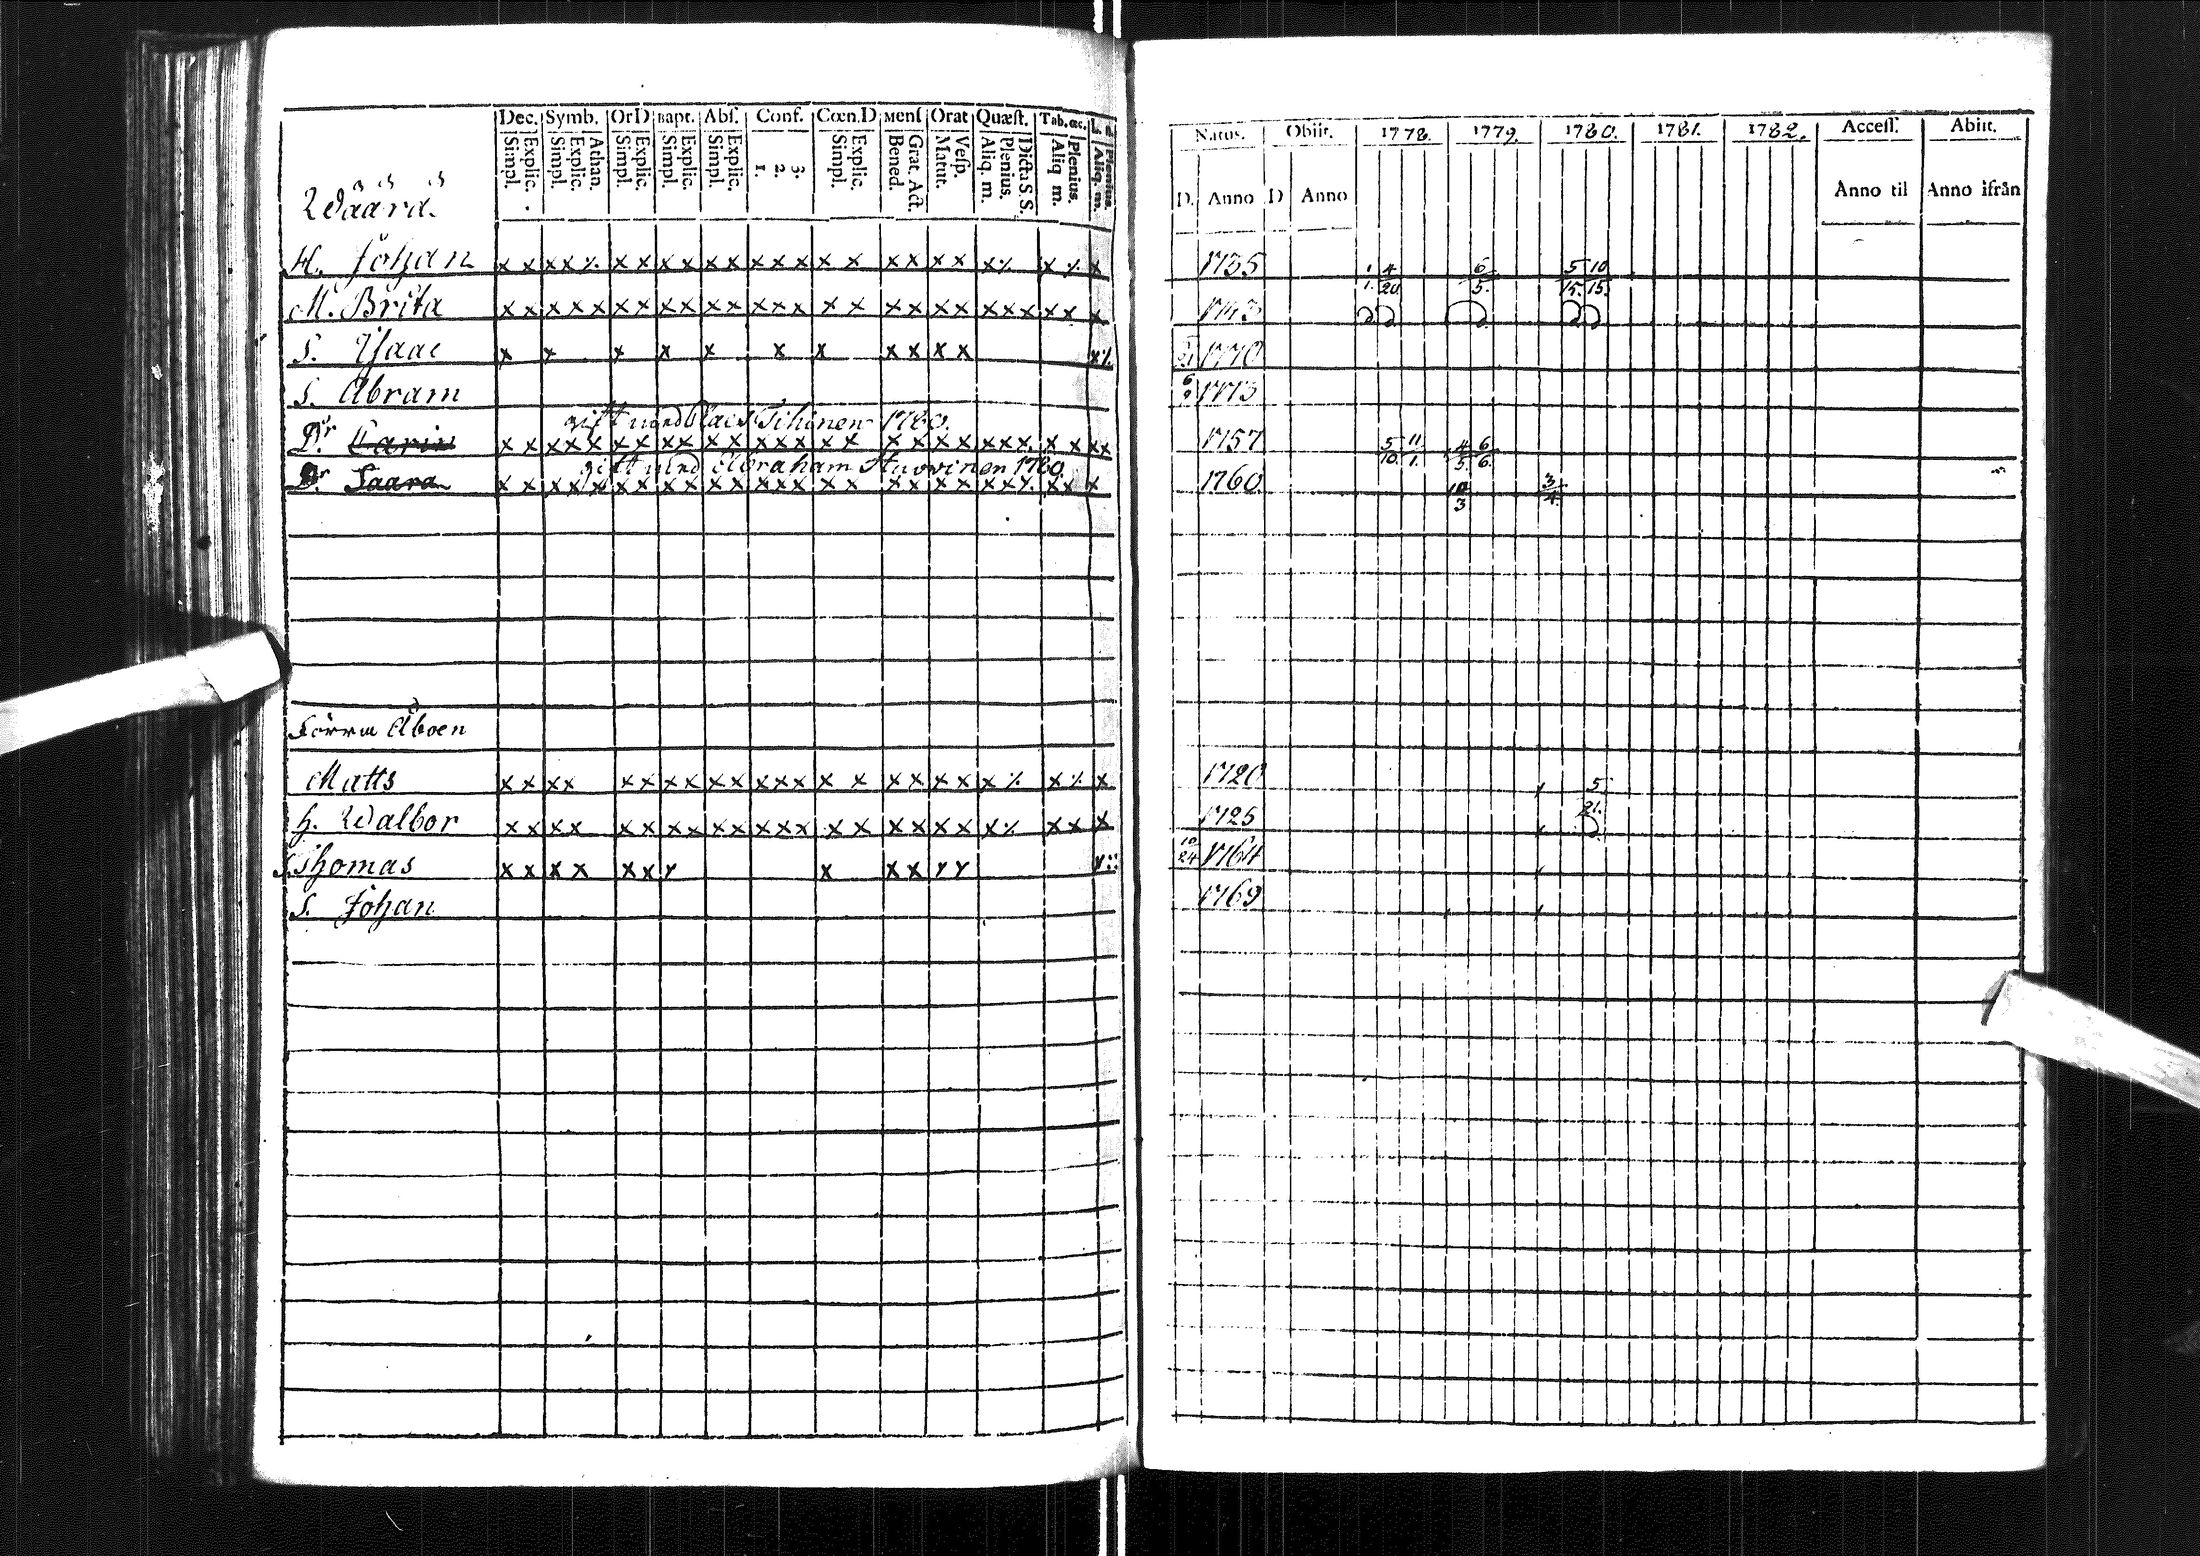 Dec. Symb. Or D Bapt. Abs. Conf. Cœn.D Mens Orat Quæst. Tab. œc. L. n.
Simpl. Explic. Simpl. Explic. Athan. Simpl. Explic. Simpl. Explic. Simpl. Explic. 1. 2. 3. Simpl. Explic. Bened. Grat. Act. Matut. Vesp. Aliq. m. Plenius. Dicta S. S. Aliq. m. Plenius. Aliq. m. Plenius.
Natus. Obiit. 1778. 1779. 1780. 1781. 1782. Access. Abiit.
D. Anno D Anno Anno til Anno ifrån
Wäärä.
H. Johan x x x x ⁒ x x x x x x x x x x x x x x x x ⁒ x ⁒ x 1735 1/1. 4/20 6/5. 5/15. 10/15.
M. Brita x x x x x x x x x x x x x x x x x x x x x x x x x x x 1743
S. Isaac x x x x x x x x x x x x ⁒ 21 1770
S. Abram 6/9 1773
gift med Clas Tihinen 1780.
Dr. Carin x x x x x x x x x x x x x x x x x x x x x x x x x x x x 1757 5/10. 11/1. 4/5. 6/6.
gift med Abraham Huovinen 1780
Dr. Saara x x x x x x x x x x x x x x x x x x x x x x x x x x x 1760 10/3 3/4.
Åboen
Matts x x x x x x x x x x x x x x x x x x x x ⁒ x ⁒ x 1720 5/21.
h. Walbor x x x x x x x x x x x x x x x x x x x x ⁒ x x x 1725
S. Thomas x x x x x x x x x x x x 10/24 1764
S. Johan 1769